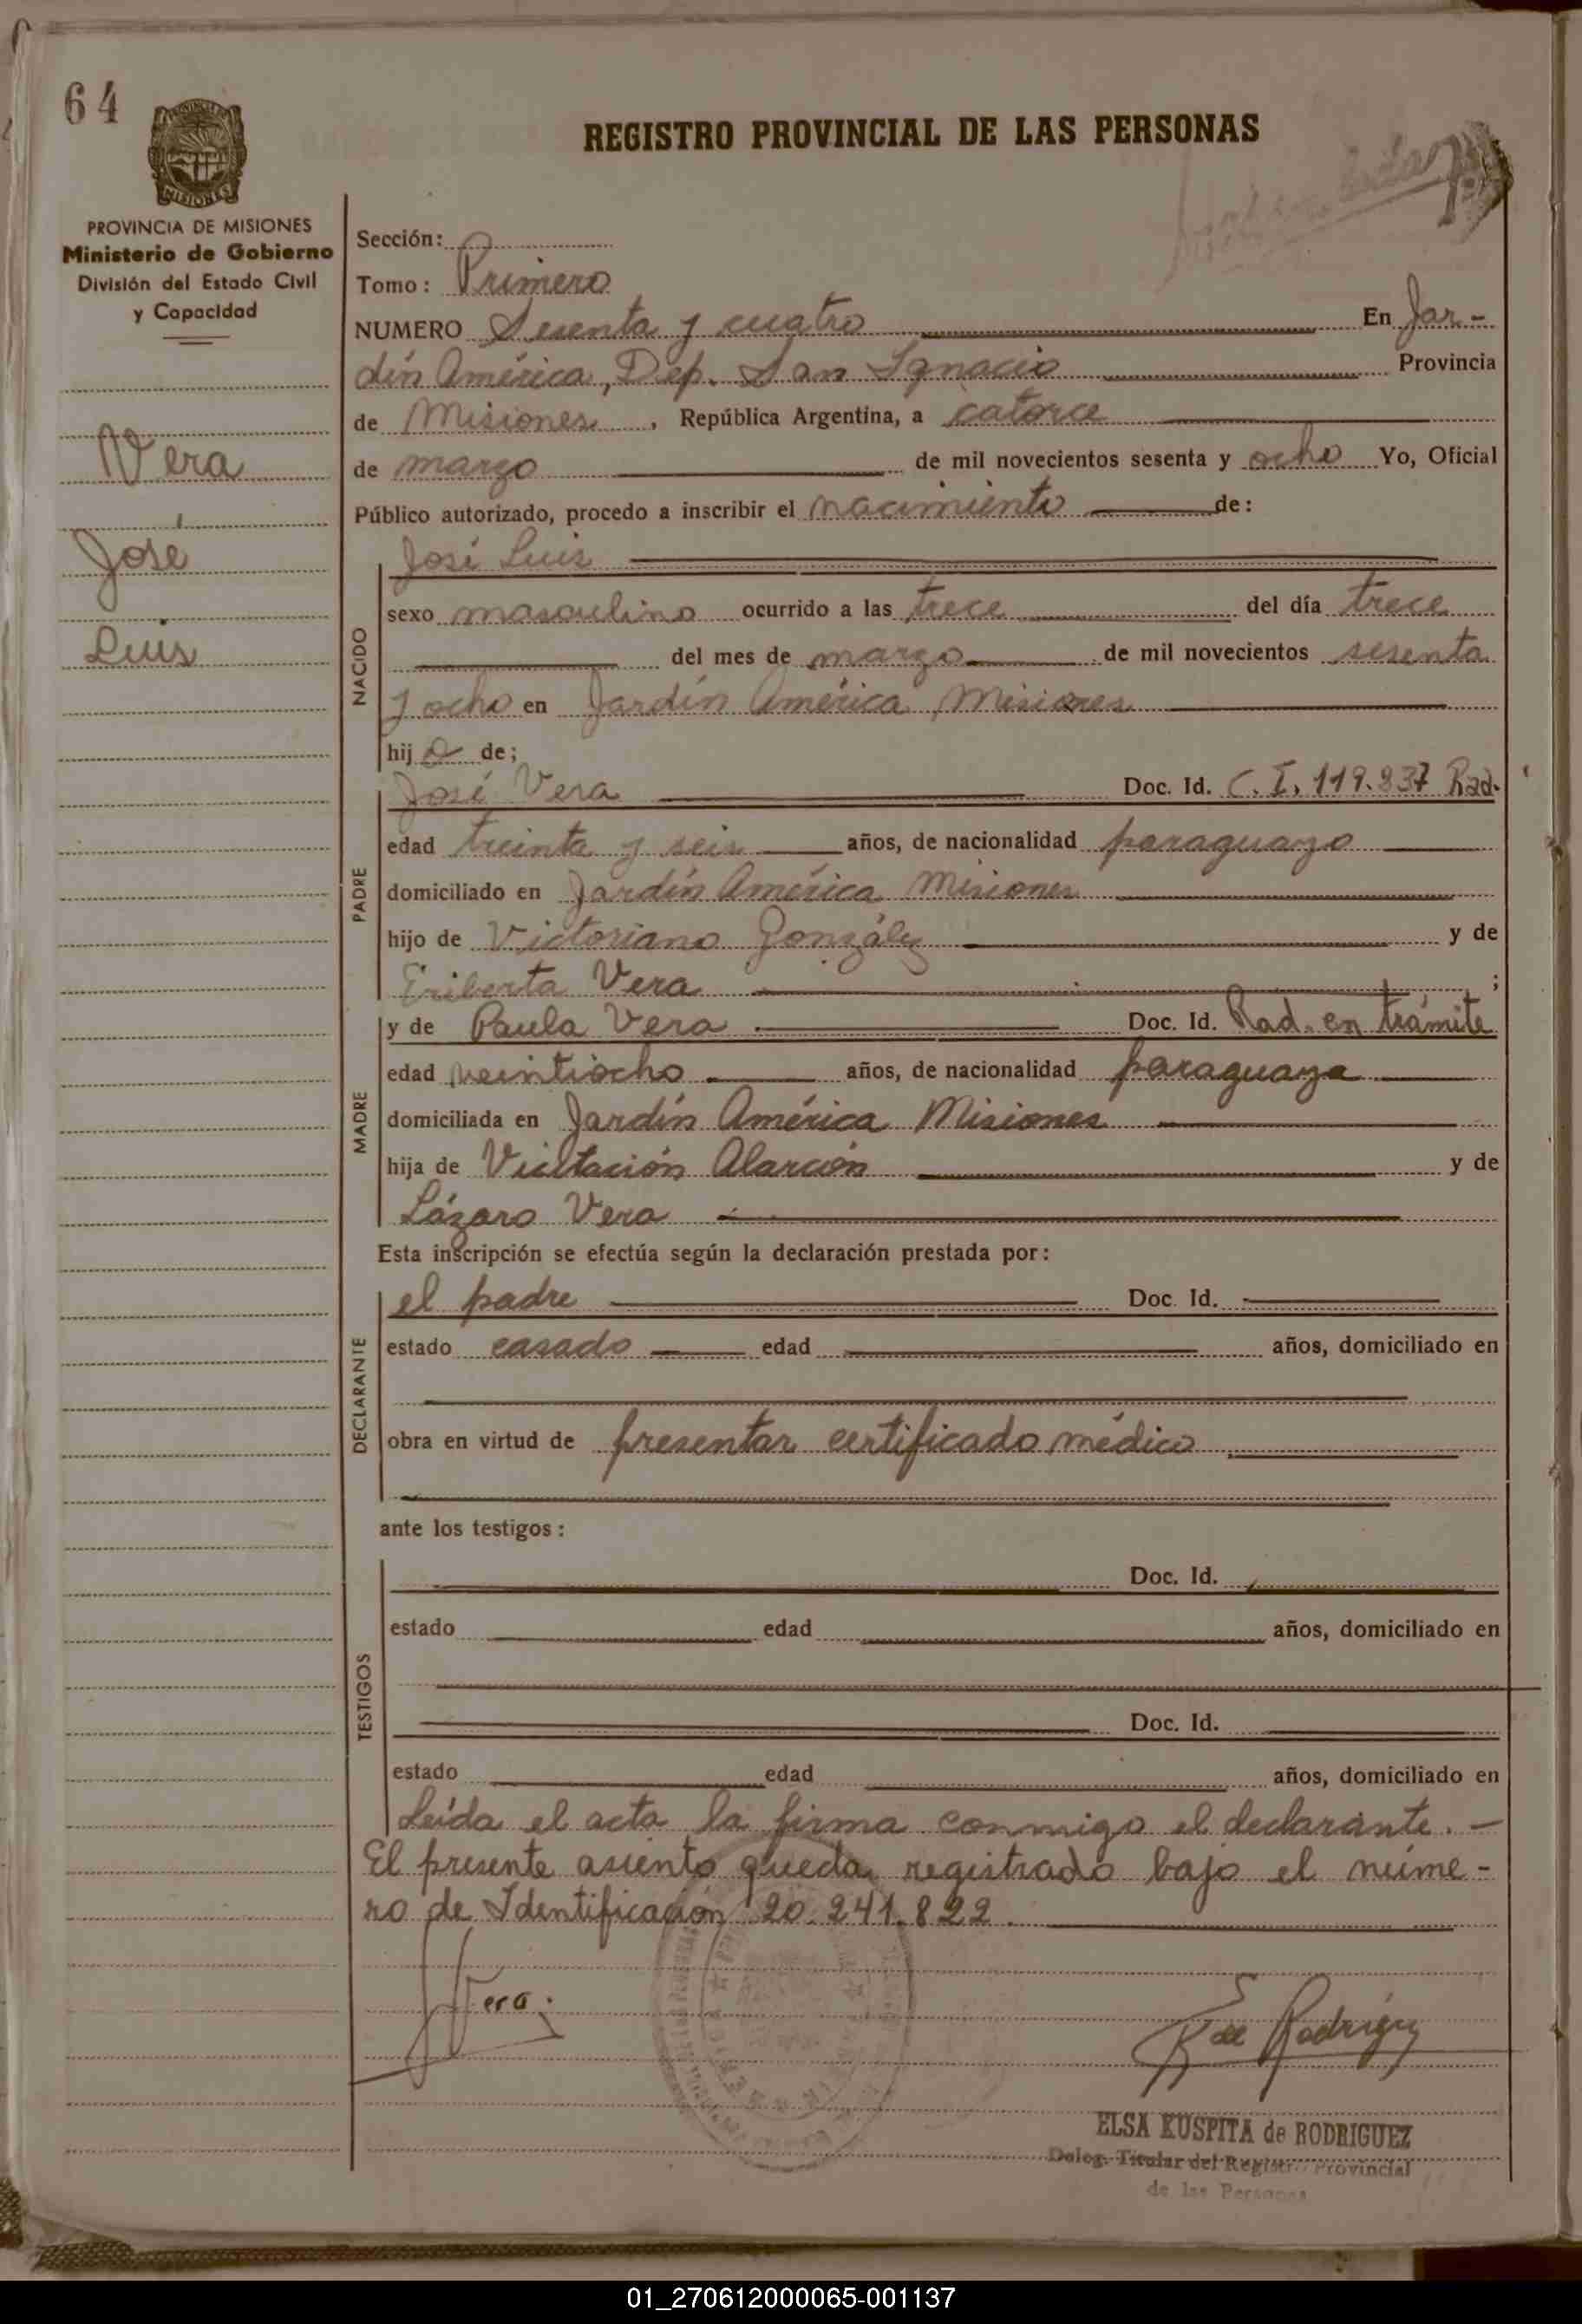 64
REGISTRO PROVINCIAL DE LAS PERSONAS
PROVINCIA DE MISIONES
Ministerio de Gobierno
División del Estado Civil
y Capacidad
Vera
José
Luis
Sección:
Tomo: Primero
NUMERO Sesenta y cuatro En Jar-
dín América, Dep. San Ignacio Provincia
de Misiones, República Argentina, a catorce
de marzo de mil novecientos sesenta y ocho Yo, Oficial
Público autorizado, procedo a inscribir el nacimiento de:
NACIDO
José Luis
sexo masculino ocurrido a las trece del día trece
del mes de marzo de mil novecientos sesenta
y ocho en Jardín América, Misiones
hijo de;
PADRE
José Vera Doc. Id. C. I. 119.837 Rad.
edad treinta y seis años, de nacionalidad paraguayo
domiciliado en Jardín América Misiones
hijo de Victoriano González y de
Eriberta Vera ;
MADRE
y de Paula Vera Doc. Id. Rad. en trámite
edad veintiocho años, de nacionalidad paraguaya
domiciliada en Jardín América Misiones
hija de Visitación Alarcón y de
Lázaro Vera
Esta inscripción se efectúa según la declaración prestada por:
DECLARANTE
el padre Doc. Id.
estado casado edad años, domiciliado en
obra en virtud de presentar certificado médico
ante los testigos:
TESTIGOS
Doc. Id.
estado edad años, domiciliado en
Doc. Id.
estado edad años, domiciliado en
Leída el acta la firma conmigo el declarante.-
El presente asiento queda registrado bajo el núme-
ro de Identificación 20.241.822
JVera.
E K de Rodríguez
ELSA KUSPITA de RODRIGUEZ
Deleg. Titular del Registro Provincial
de las Personas
01_270612000065-001137